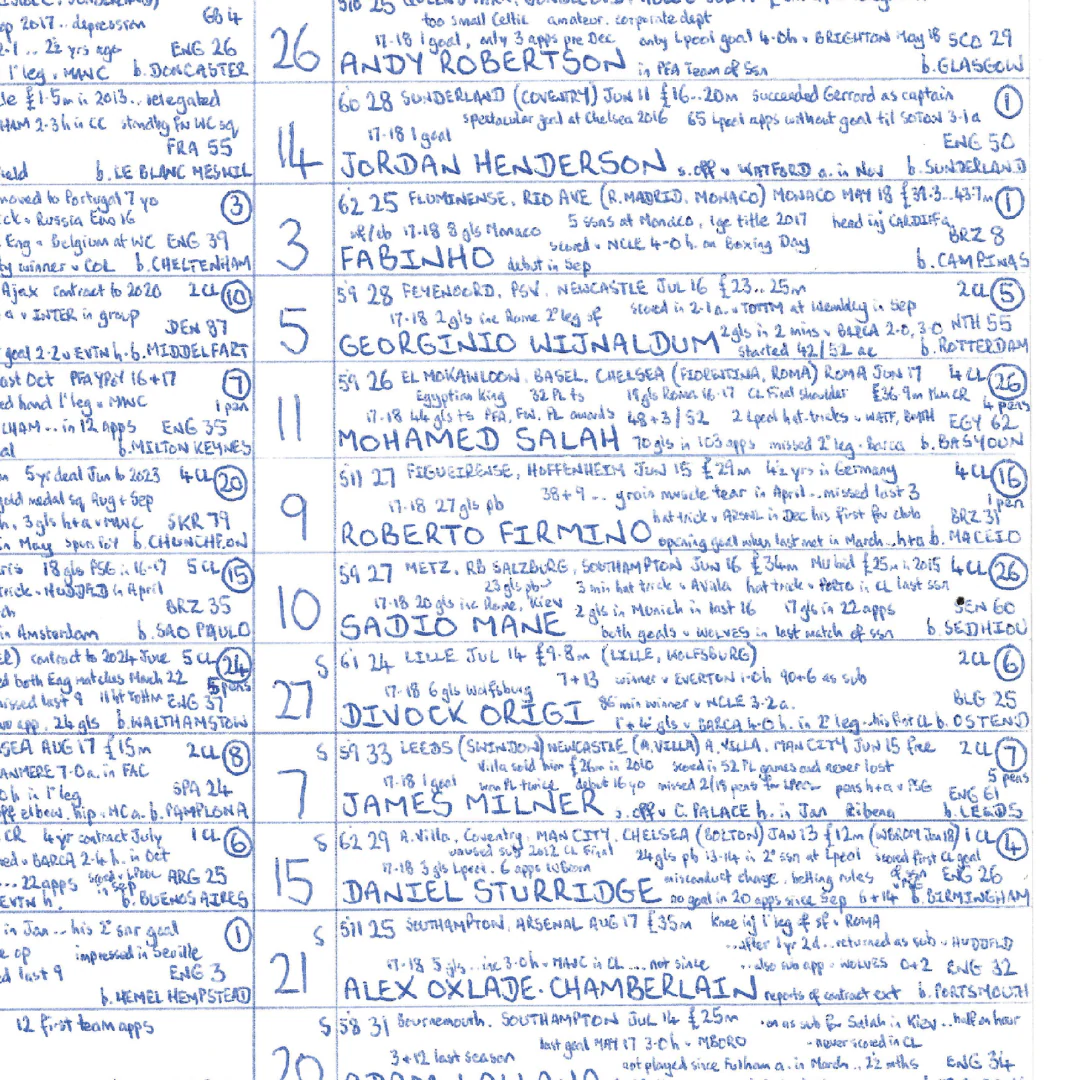 ep 2017.. depression
2-1.. 2½ yrs ago ENG 26
1° leg v MANC b. DONCASTER
le £1.5m in 2013.. relegated
HAM 2-3 h in CC standby for WC sq
FRA 55
field b. LE BLANC MESNIL
moved to Portugal 7 yo
3
ck v Russia Euro 16
Eng v Belgium at WC ENG 39
ty winner v COL b. CHELTENHAM
Ajax contract to 2020 2CL 10
a v INTER in group
DEN 87
goal 2-2 v EVTN h. b. MIDDELFART
ast Oct PFAYPOY 16+17
7
ed hand 1° leg v MANC
1 pen
CHAM... in 12 apps ENG 35
al b. MILTON KEYNES
5yr deal Jun to 2023 4CL 20
gold medal sq Aug + Sep
h, 3 gls h+a v MANC SKR 79
in May b. CHUNCHEON
ris 18 gls PSG in 16-17 5CL 15
trick v HUDDFLD in April
BRZ 35
in Amsterdam b. SAO PAULO
contract to 2024 June 5CL 24
ed both Eng matches March 22
5 pens
missed last 9 ENG 37
app, 24 gls b. WALTHAMSTOW
SEA AUG 17 £15m 2CL 8
ANMERE 7-0 a. in FAC
0 h in 1° leg SPA 24
off elbow, hip v MC a. b. PAMPLONA
CR 4yr contract July 1CL 6
ed v BARCA 2-4 h. in Oct
... 22 apps scored v LPOOL in Sep ARG 25
EVTN h. b. BUENOS AIRES
in Jan.. his 2° snr goal
1
ce op impressed in Seville
ed last 9 ENG 3
b. HEMEL HEMPSTEAD
12 first team apps
too small Celtic amateur, corporate dept
17-18 1 goal, only 3 apps pre Dec only Lpool goal 4-0 h v BRIGHTON May 18 SCO 29
26 ANDY ROBERTSON in PFA Team of Ssn b. GLASGOW
60 28 SUNDERLAND (COVENTRY) JUN 11 £16..20m succeeded Gerrard as captain 1
spectacular goal at Chelsea 2016 65 Lpool apps without goal til SOTON 3-1 a
17-18 1 goal ENG 50
14 JORDAN HENDERSON s. off v WATFORD a. in Nov b. SUNDERLAND
62 25 FLUMINENSE, RIO AVE (R.MADRID, MONACO) MONACO MAY 18 £39.3...43.7m 1
5 ssns at Monaco, lge title 2017 head inj CARDIFF a.
rb/cb 17-18 8 gls Monaco scored v NCLE 4-0 h. on Boxing Day BRZ 8
3 FABINHO debut in Sep b. CAMPINAS
59 28 FEYENOORD, PSV, NEWCASTLE JUL 16 £23...25m 2CL 5
scored in 2-1 a. v TOTTM at Wembley in Sep
17-18 2 gls inc Rome 2° leg sf 2 gls in 2 mins v BARCA 2-0, 3-0 NTH 55
5 GEORGINIO WIJNALDUM started 42/52 ac b. ROTTERDAM
59 26 EL MOKAWLOON, BASEL, CHELSEA (FIORENTINA, ROMA) ROMA JUN 17 4CL 26
Egyptian king 32 PL ts 19 gls Roma 16-17 CL Final shoulder £36.9m from CR 4 pens
17-18 44 gls ts PFA, FW, PL awards 48+3/52 2 Lpool hat-tricks v WATF, BMTH EGY 62
11 MOHAMED SALAH 70 gls in 103 apps missed 2° leg v Barca b. BASYOUN
511 27 FIGUEIRENSE, HOFFENHEIM JUN 15 £29m 4½ yrs in Germany 4CL 16
38+9... groin muscle tear in April.. missed last 3 1 pen
17-18 27 gls pb hat trick v ARSNL in Dec his first for club BRZ 31
9 ROBERTO FIRMINO opening goal when last met in March..h+a b. MACEIO
59 27 METZ, RB SALZBURG, SOUTHAMPTON JUN 16 £34m Mu bid £25m in 2015 4CL 26
23 gls pb 3 min hat trick v A Villa hat trick v PORTO in CL last ssn
17-18 20 gls inc Rome, Kiev 2 gls in Munich in last 16 17 gls in 22 apps SEN 60
10 SADIO MANE both goals v WOLVES in last match of ssn b. SEDHIOU
S 61 24 LILLE JUL 14 £9.8m (LILLE, WOLFSBURG) 2CL 6
7+13 winner v EVERTON 1-0 h 90+6 as sub
17-18 6 gls Wolfsburg 86 min winner v NCLE 3-2 a. BLG 25
27 DIVOCK ORIGI 1°+4° gls v BARCA 4-0 h. in 2° leg..his first CL b. OSTEND
S 59 33 LEEDS (SWINDON) NEWCASTLE (A.VILLA) A.VILLA, MAN CITY JUN 15 free 2CL 7
Villa sold him £26m in 2010 scored in 52 PL games and never lost 5 pens
17-18 1 goal won PL twice debut 16 yo missed 2/15 pens for LPOOL pens h+a v PSG ENG 61
7 JAMES MILNER s. off v C. PALACE h. in Jan Ribena b. LEEDS
S 62 29 A.Villa, Coventry, MAN CITY, CHELSEA (BOLTON) JAN 13 £12m (WBROM Jan 18) 1CL 4
unused sub 2012 CL Final 24 gls pb 13-14 in 2° ssn at Lpool scored first CL goal of ssn
17-18 3 gls Lpool. 6 apps WBrom misconduct charge, betting rules ENG 26
15 DANIEL STURRIDGE no goal in 20 apps since Sep 6+14 b. BIRMINGHAM
S 511 25 SOUTHAMPTON, ARSENAL AUG 17 £35m knee inj 1° leg of sf v ROMA
...after 1yr 2d...returned as sub v HUDDFLD
17-18 5 gls... inc 3-0 h v MANC in CL....not since ..also sub app v WOLVES 0+2 ENG 32
21 ALEX OXLADE-CHAMBERLAIN reports of contract ext b. PORTSMOUTH
S 58 31 Bournemouth, SOUTHAMPTON JUL 14 £25m on as sub for Salah in Kiev...half an hour
last goal MAY 17 3-0 h v MBORO never scored in CL
3+12 last season not played since Fulham a. in March .. 2½ mths ENG 34
20 ADAM LALLANA